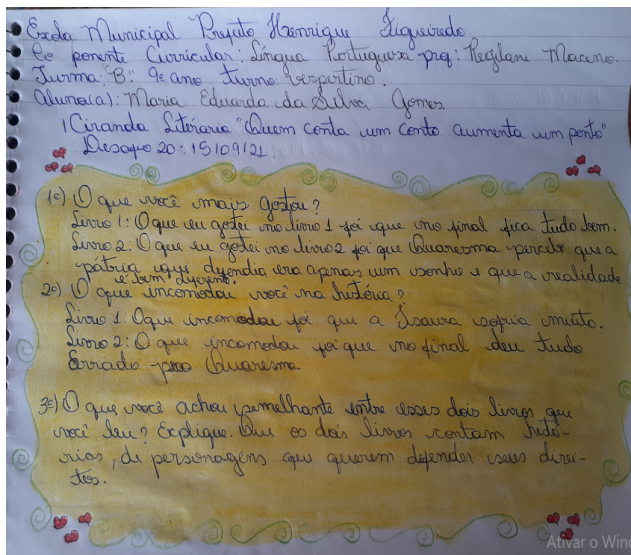 Escola Municipal Prefeito Henrique Figueiredo.
Co ponente Curricular: Língua Portuguesa prof: Regilani Maceno.
Turma: "B": 9º ano turno: vespertino.
aluno(a): Maria Eduarda da Silva Gomes
Ciranda Literaria "Quem conta um conto aumenta um ponto"
Desafio 20: 15/09/21.
1º) O que você mais gostou?
Livro 1: O que eu gostei no livro 1 foi que no final fica tudo bem.
Livro 2: O que eu gostei no livro 2 foi que Quaresma percebe que a
pátria que defendia era apenas um sonho e que a realidade
e bem diferente.
2º) O que incomodou você na história?
Livro 1: O que incomodou foi que a Isaura sofria muito.
Livro 2: O que incomodou foi que no final deu tudo
Errado pro Quaresma.
3º) O que você achou semelhante entre esses dois livros que
você leu? Explique. Que os dois livros contam histó-
rias, de personagens que querem defender seus direi-
tos.
Ativar o Wind